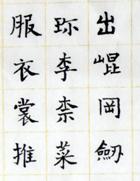 出崐岡劔
珎李柰菜
服衣裳推